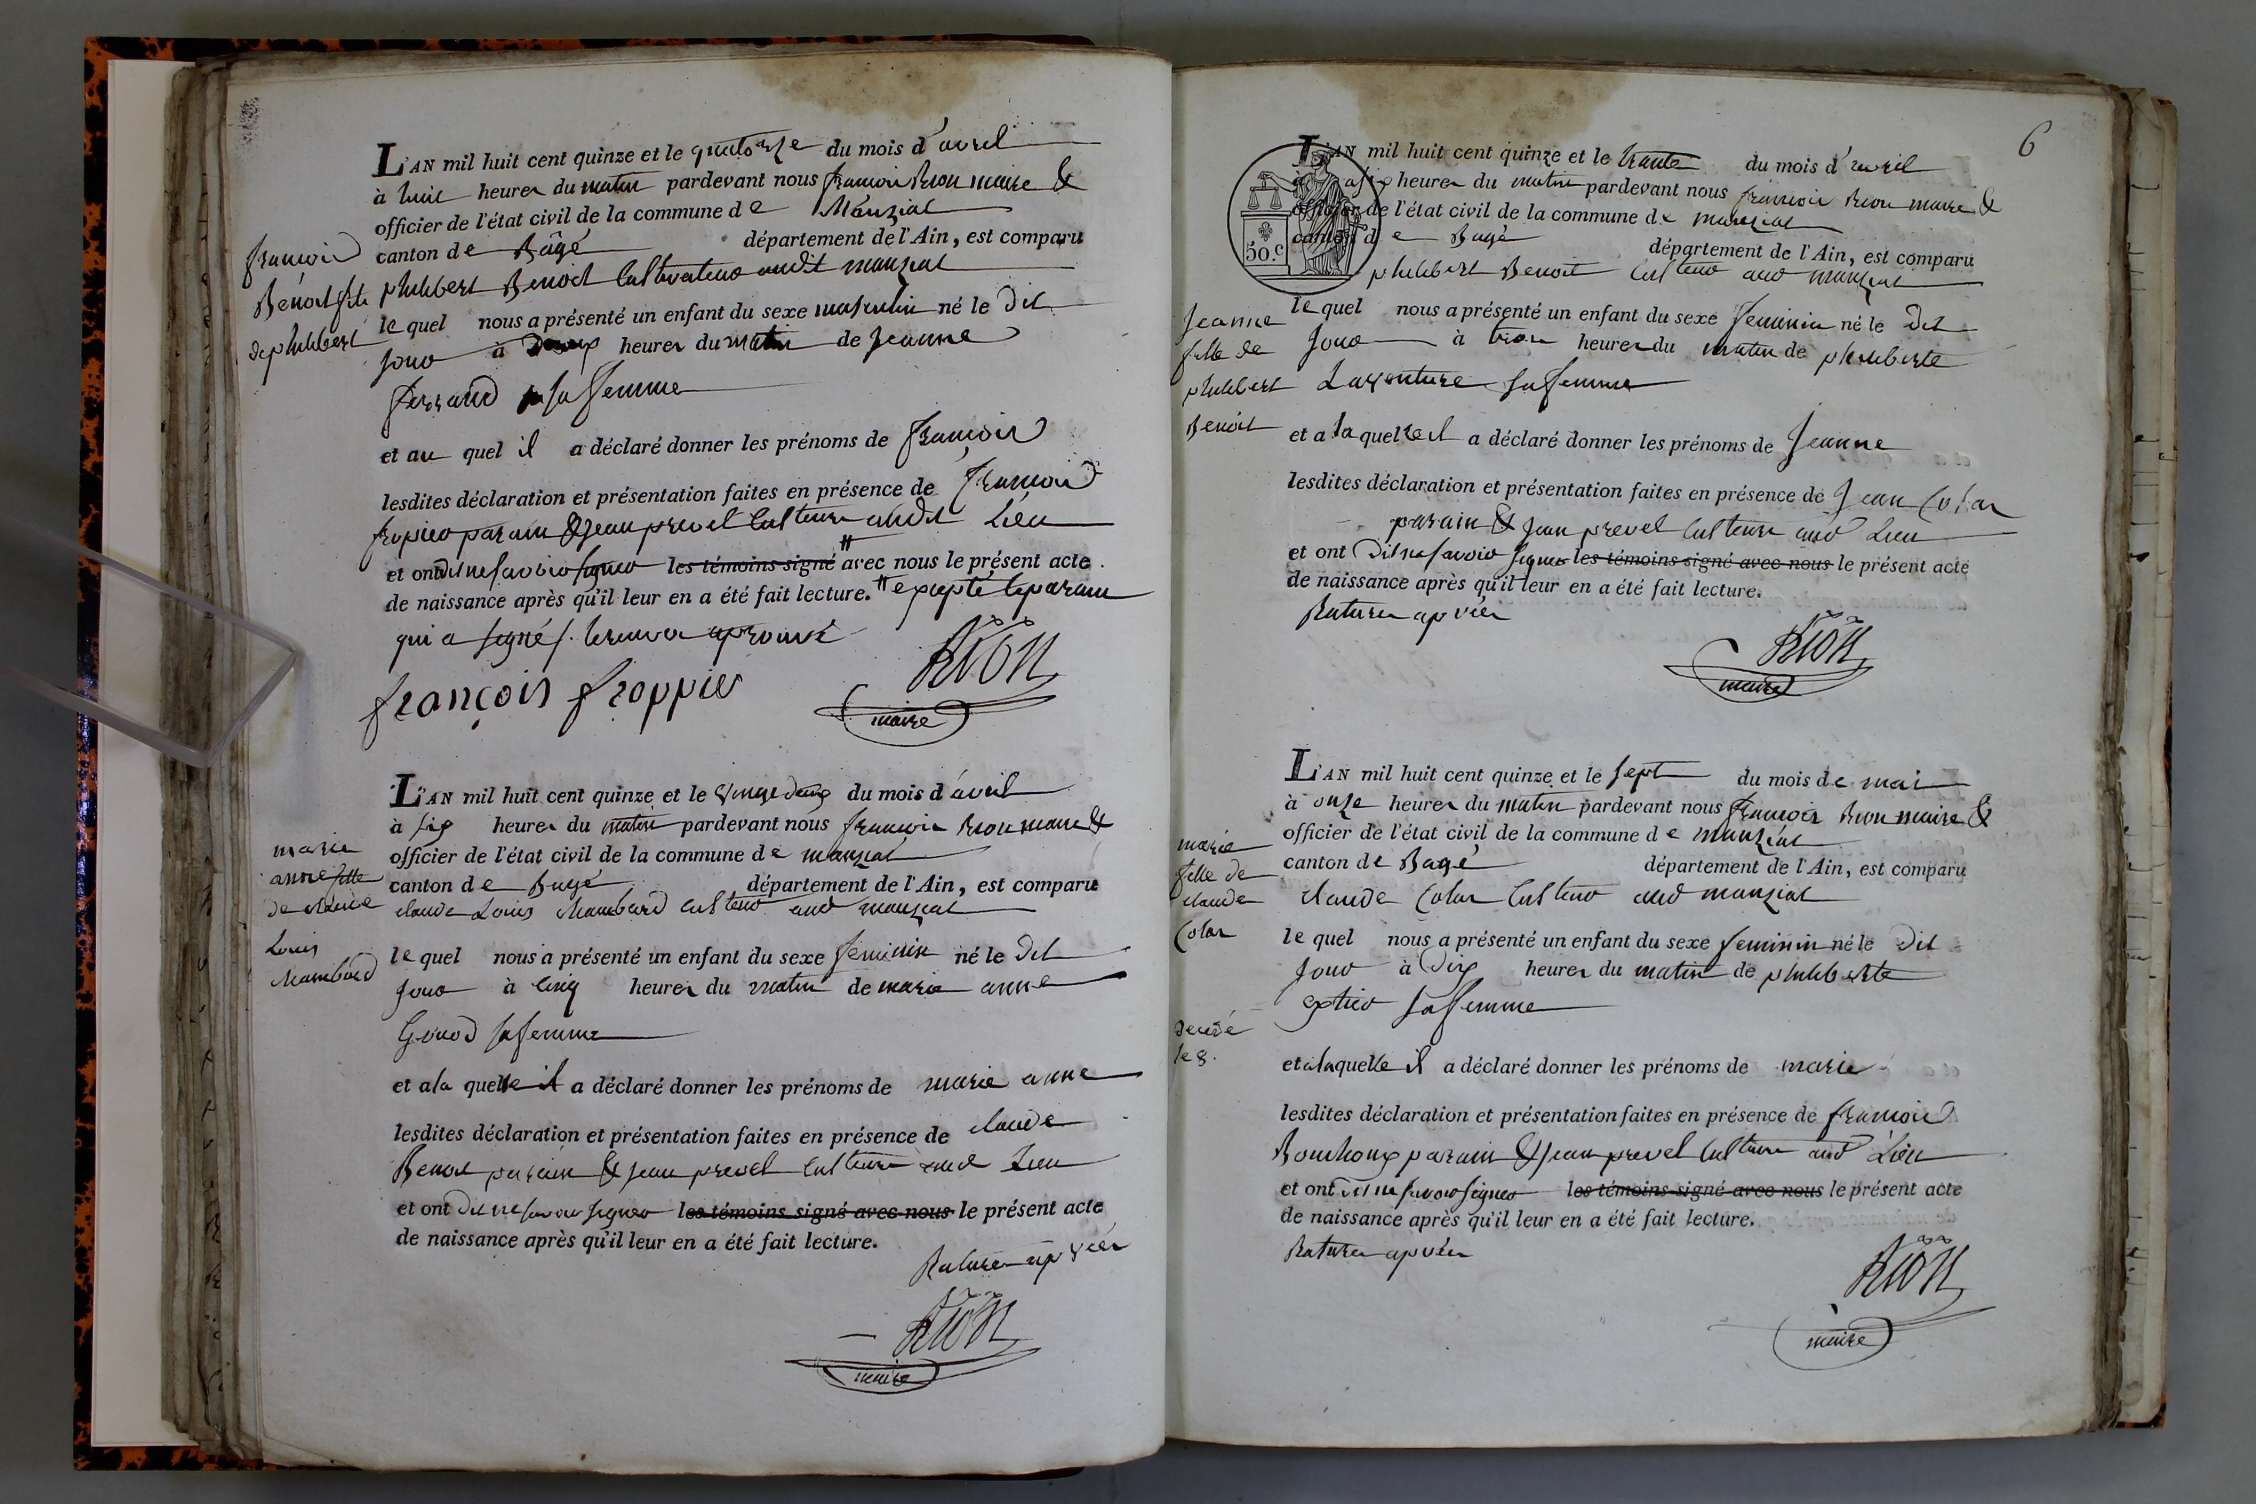 L'AN mil huit cent quinze et le quatorze du mois d'avril
à huit heures du matin pardevant nous françois Rion maire &
officier de l'état civil de la commune de Manziat
canton de Bâgé département de l'Ain, est comparu
philibert Benoit Cultivateur audit manziat
le quel nous a présenté un enfant du sexe masculin né le Dit
Jour à heures du matin de Jeanne
ferrand sa femme
et au quel il a déclaré donner les prénoms de françois
lesdites déclaration et présentation faites en présence de françois
fropier parain & Jean prevel Culteurs audit Lieu
et ont dit ne savoir signer les témoins signé " avec nous le présent acte
de naissance après qu'il leur en a été fait lecture. " excepté le parain
qui a signé
françois froppier
Rion
maire
françois
Benoit fils
de philibert
L'AN mil huit cent quinze et le vingt deux du mois d'avril
à six heures du matin pardevant nous françois Rion maire &
officier de l'état civil de la commune de manziat
canton de Bagé département de l'Ain, est comparu
claude Louis Mambard Culteur aud manziat
le quel nous a présenté un enfant du sexe feminin né le Dit
Jour à cinq heures du matin de marie anne
Gonod sa femme
et a la quelle il a déclaré donner les prénoms de marie anne
lesdites déclaration et présentation faites en présence de claude
Benoit parain & Jean prevel Culteurs aud Lieu
et ont Dit ne savoir signer les témoins signé avec nous le présent acte
de naissance après qu'il leur en a été fait lecture.
Ratures apvées
Rion
maire
marie
anne fille
de claude
Louis
Mambard
6
50.c
L'AN mil huit cent quinze et le trente du mois d'avril
à six heures du matin pardevant nous françois Rion maire &
officier de l'état civil de la commune de manziat
canton de Bagé département de l'Ain, est comparu
philibert Benoit Culteur aud manziat
le quel nous a présenté un enfant du sexe feminin né le Dit
Jour à trois heures du matin de philiberte
Laventure sa femme
et a la quelle il a déclaré donner les prénoms de Jeanne
lesdites déclaration et présentation faites en présence de Jean Colas
parain & Jean prevel Culteurs aud Lieu
et ont Dit ne savoir signer les témoins signé avec nous le présent acte
de naissance après qu'il leur en a été fait lecture.
Ratures apvées
Rion
maire
Jeanne
fille de
philibert
Benoit
L'AN mil huit cent quinze et le sept du mois de mai
à onze heures du matin pardevant nous françois Rion maire &
officier de l'état civil de la commune de manziat
canton de Bagé département de l'Ain, est comparu
claude Colas Culteur aud manziat
le quel nous a présenté un enfant du sexe feminin né le Dit
Jour à Dix heures du matin de philiberte
sa femme
et a la quelle il a déclaré donner les prénoms de marie
lesdites déclaration et présentation faites en présence de françois
Bouchoux parain & Jean prevel Culteurs aud Lieu
et ont Dit ne savoir signer les témoins signé avec nous le présent acte
de naissance après qu'il leur en a été fait lecture.
Ratures apvées
Rion
maire
marie
fille de
claude
Colas
decédé
le 8.